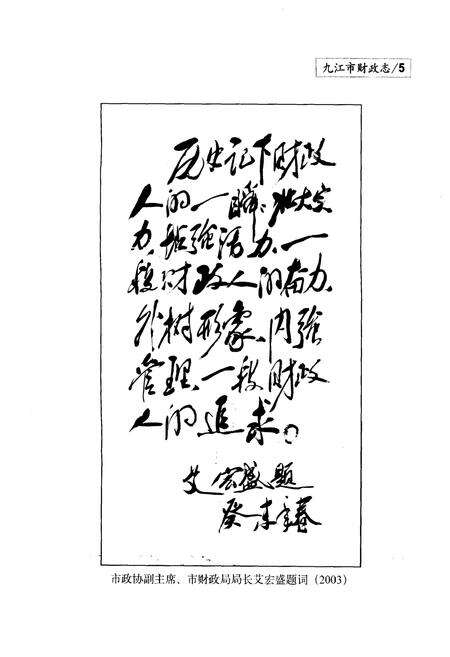 九江市财政志/5
历史记下财政
人的一瞬：壮大实
力、增强活力，一
段财政人的奋力，
外树形象、内强
管理，一段财政
人的追求。
艾宏盛题
癸未年春
市政协副主席、市财政局局长艾宏盛题词（2003）